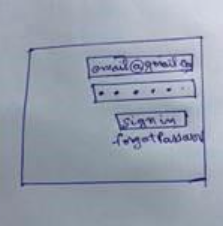 email@gmail.co
• • • • • •
sign in
forgot Password